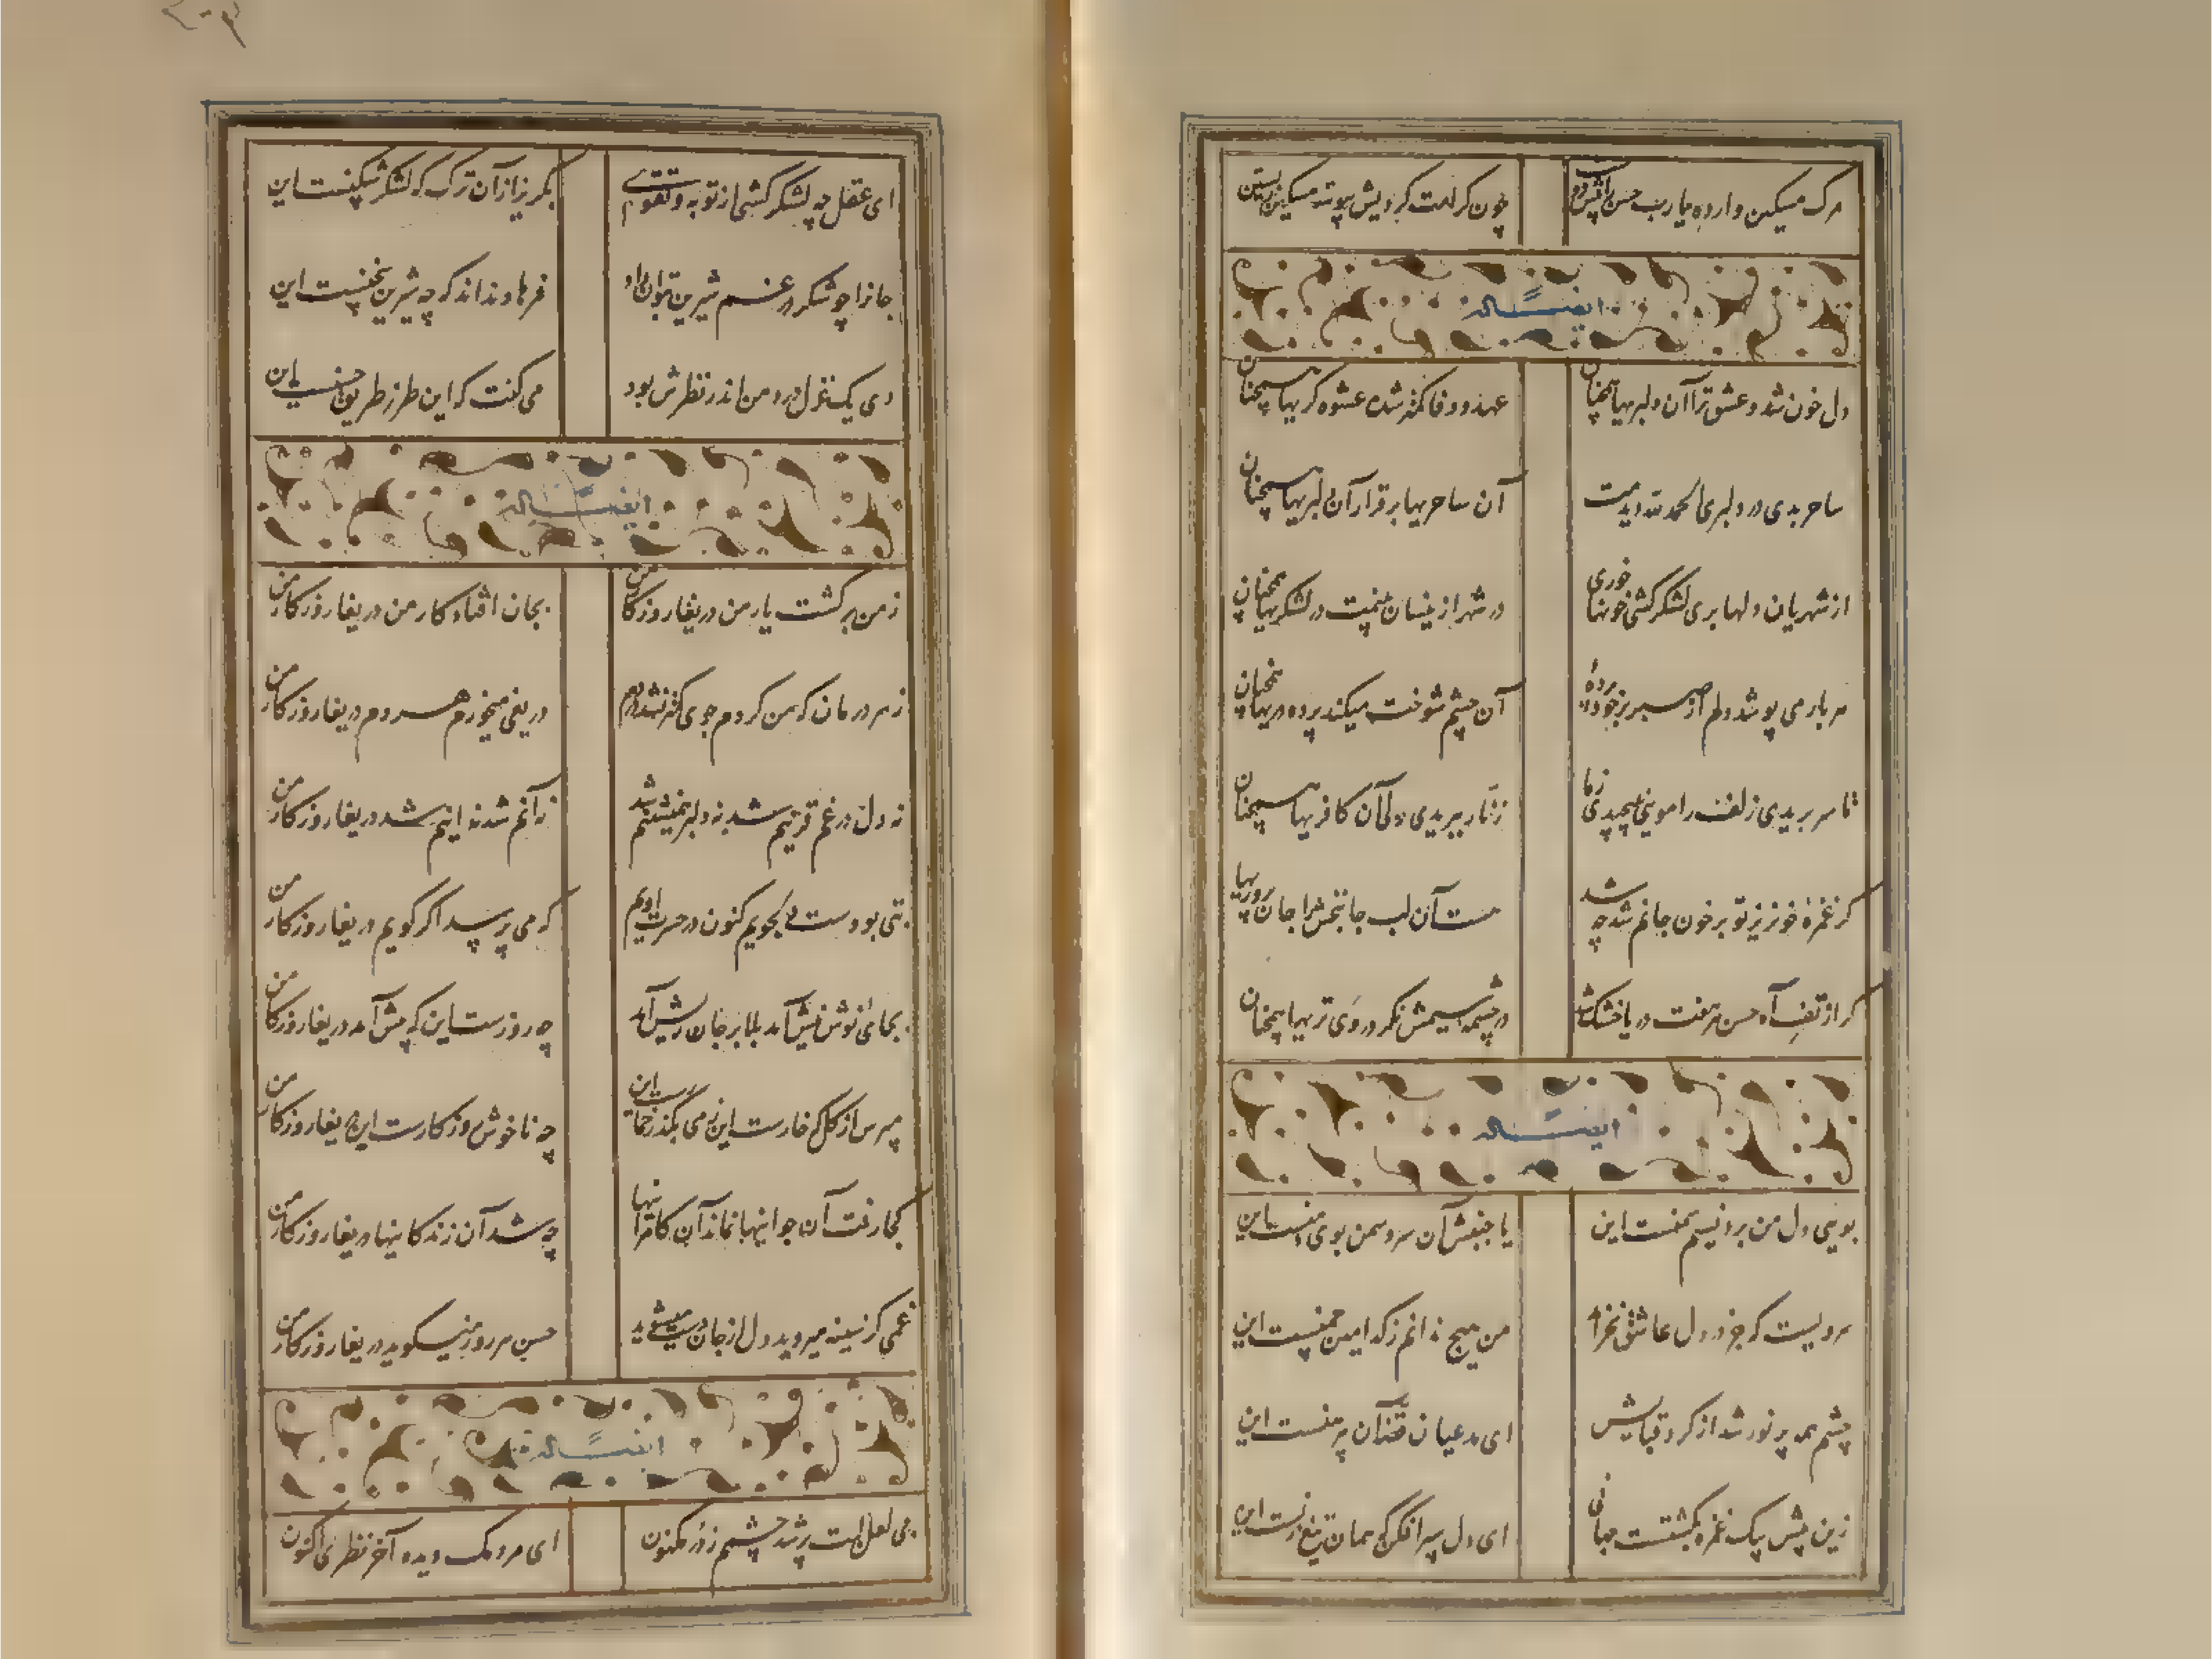 مرگ مسکین وار ده یارب حسن را پیش دوست
چون کرامت کردیش پیوسته مسکین زیستن
ایضاً له
دل خون شد و عشق ترا آن دلبریها همچنان
عهد و وفا کمتر شده عشوه کریها همچنان
ساحر بدی در دلبری الحمدلله دیدمت
آن ساحریها برقرار آن دلبریها همچنان
از شهریان دلها بری لشکر کشی خونها خوری
در شهر از ینسان در لشکریها همچنان
هر بار می پوشد دلم از صبر بر خود پرده
آن چشم شوخت میکند پرده دریها همچنان
تا سر بریدی زلف را مویی نپیچیدی زما
زنار ببریدی ولی آن کافریها همچنان
گر غمزهٔ خونریز تو بر خون جانم شد چه شد
هست آن لب جانبخش را جان پروریها
گر از تف آه حسن هر هفت دریا خشک شد
در چشمه سیمش نگر در وی تریها همچنان
ایضاً له
بویی دل من برد نسیم سمنست این
یا جنبش آن سرو سمن بوی منست این
سرویست که جز در دل عاشق نخرامد
من هیچ ندانم ز کدامین چمنست این
چشم همه پر نور شد از گرد قبایش
ای مدعیان فتنه آن پیرهنست این
زین پیش بیک غمزه بکشتست جهانی
ای دل سپر افکن که همان تیغ زنست این
ای عقل چه لشکر کشی از توبه و تقوی
بگریز از آن ترک که لشکر شکنست این
جانرا چو شکر در غم شیرین بتوان داد
فرهاد نداند که چه شیرین سخنست این
دی یک غزل من اندر نظرش بود
می گفت که این طرز طریق حسنست این
ایضاً له
ز من برگشت یار من دریغا روزگار من
بجان افتاد کار من دریغا روزگار من
ز هر درمان که من کردم جوی کمتر نشد دردم
دریغی میخورم هردم دریغا روزگار من
نه دل در غم قرینم شد نه دلبر همنشینم شد
نه آنم شد نه اینم شد دریغا روزگار من
بتی بودست دلجویم کنون در حسرت اویم
که می پرسد اگر گویم دریغا روزگار من
بجای نوش نیش آمد بلا بر جان ریش آمد
چه روزست این که پیش آمد دریغا روزگار من
مپرس از گل که خارست این نه می بگذر خمارست این
چه ناخوش روزگارست این دریغا روزگار من
کجا رفت آن جوانیها نماند آن کامرانیها
چه شد آن زندگانیها دریغا روزگار من
غمی کز سینه میروید دل از جان دست میشوید
حسن هر روز میگوید دریغا روزگار من
ایضاً له
بی لعل لبت پر شد چشمم ز در مکنون
ای مردمک دیده آخر نظری اکنون